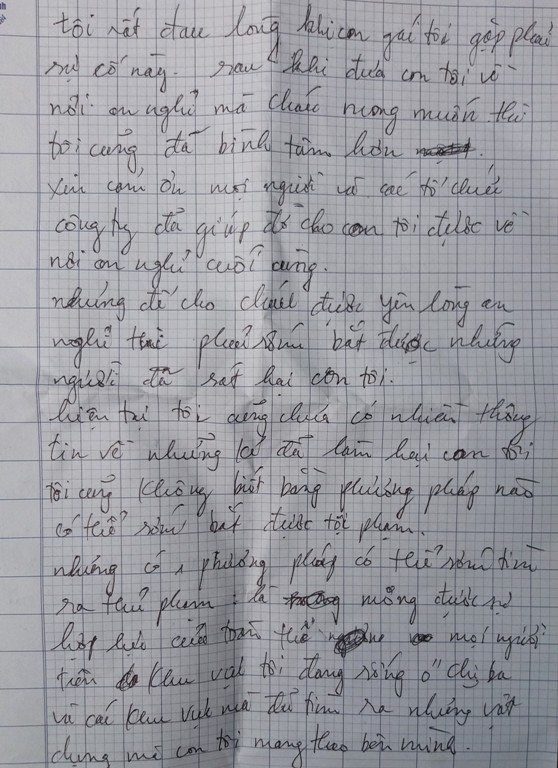 tôi rất đau lòng khi con gái tôi gặp phải
sự cố này. sau khi đưa con tôi về
nơi an nghỉ mà cháu mong muốn thì
tôi cũng đã bình tâm hơn
xin cảm ơn mọi người và các tổ chức
công ty đã giúp đỡ cho con tôi được về
nơi an nghỉ cuối cùng.
nhưng để cho cháu được yên lòng an
nghỉ thì phải sớm bắt được những
người đã sát hại con tôi.
hiện tại tôi cũng chưa có nhiều thông
tin về những kẻ đã làm hại con tôi
tôi cũng không biết bằng phương pháp nào
có thể sớm bắt được tội phạm.
nhưng có 1 phương pháp có thể sớm tìm
ra thủ phạm: là mong được sự
hợp lực của toàn thể mọi người
trên khu vực tôi đang sống ở chị ba
và các khu vực mà để tìm ra những vật
dụng mà con tôi mang theo bên mình.